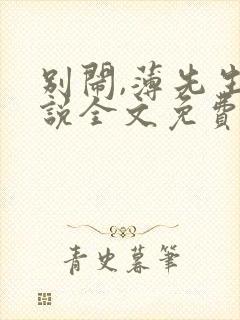 别闹,薄先生
説全文免費
青史暮筆